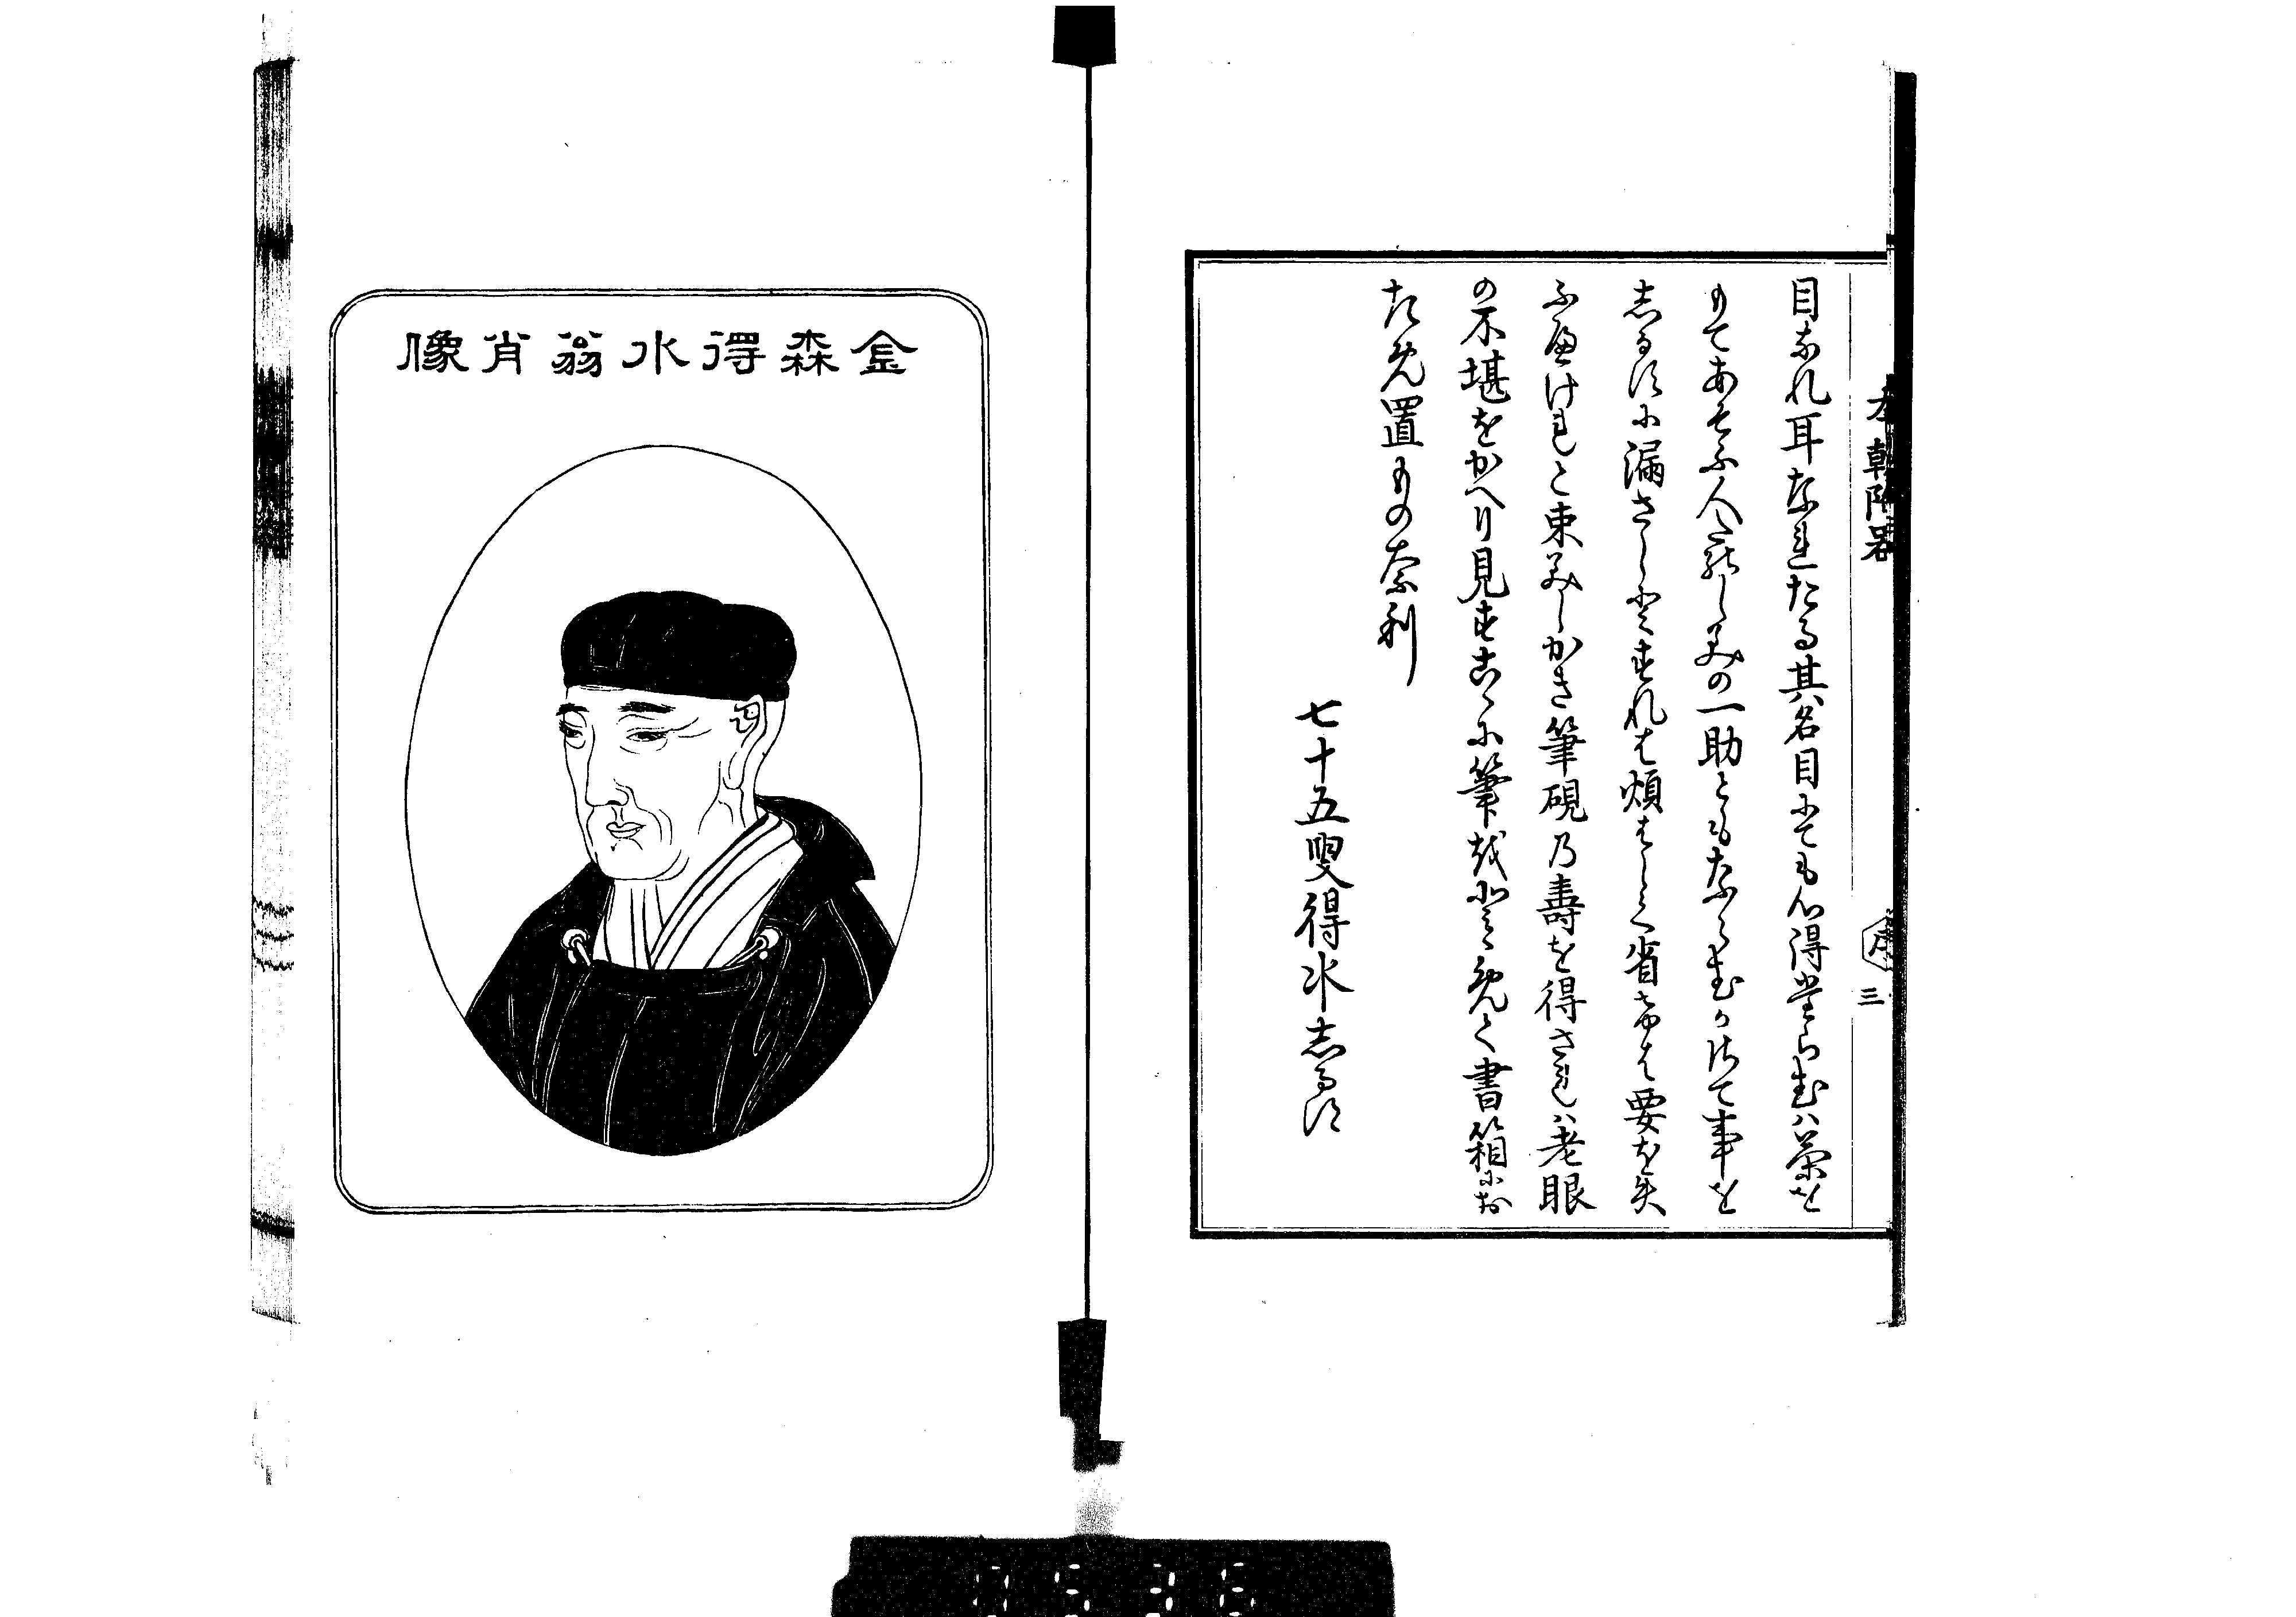 本朝陶器 序 三
目なれ耳なれたる其名目にても心得たらむハ茶を
もてあそふ人たのしみの一助ともならむか事を
しるすに漏さしとすれは煩はしく省けは要を失
ふへけれと東みしかき筆硯乃壽を得されハ老眼
の不堪をかへり見すこゝに筆をとゝめて書箱にお
さめ置ものなり
七十五叟得水志るす
金森得水翁肖像